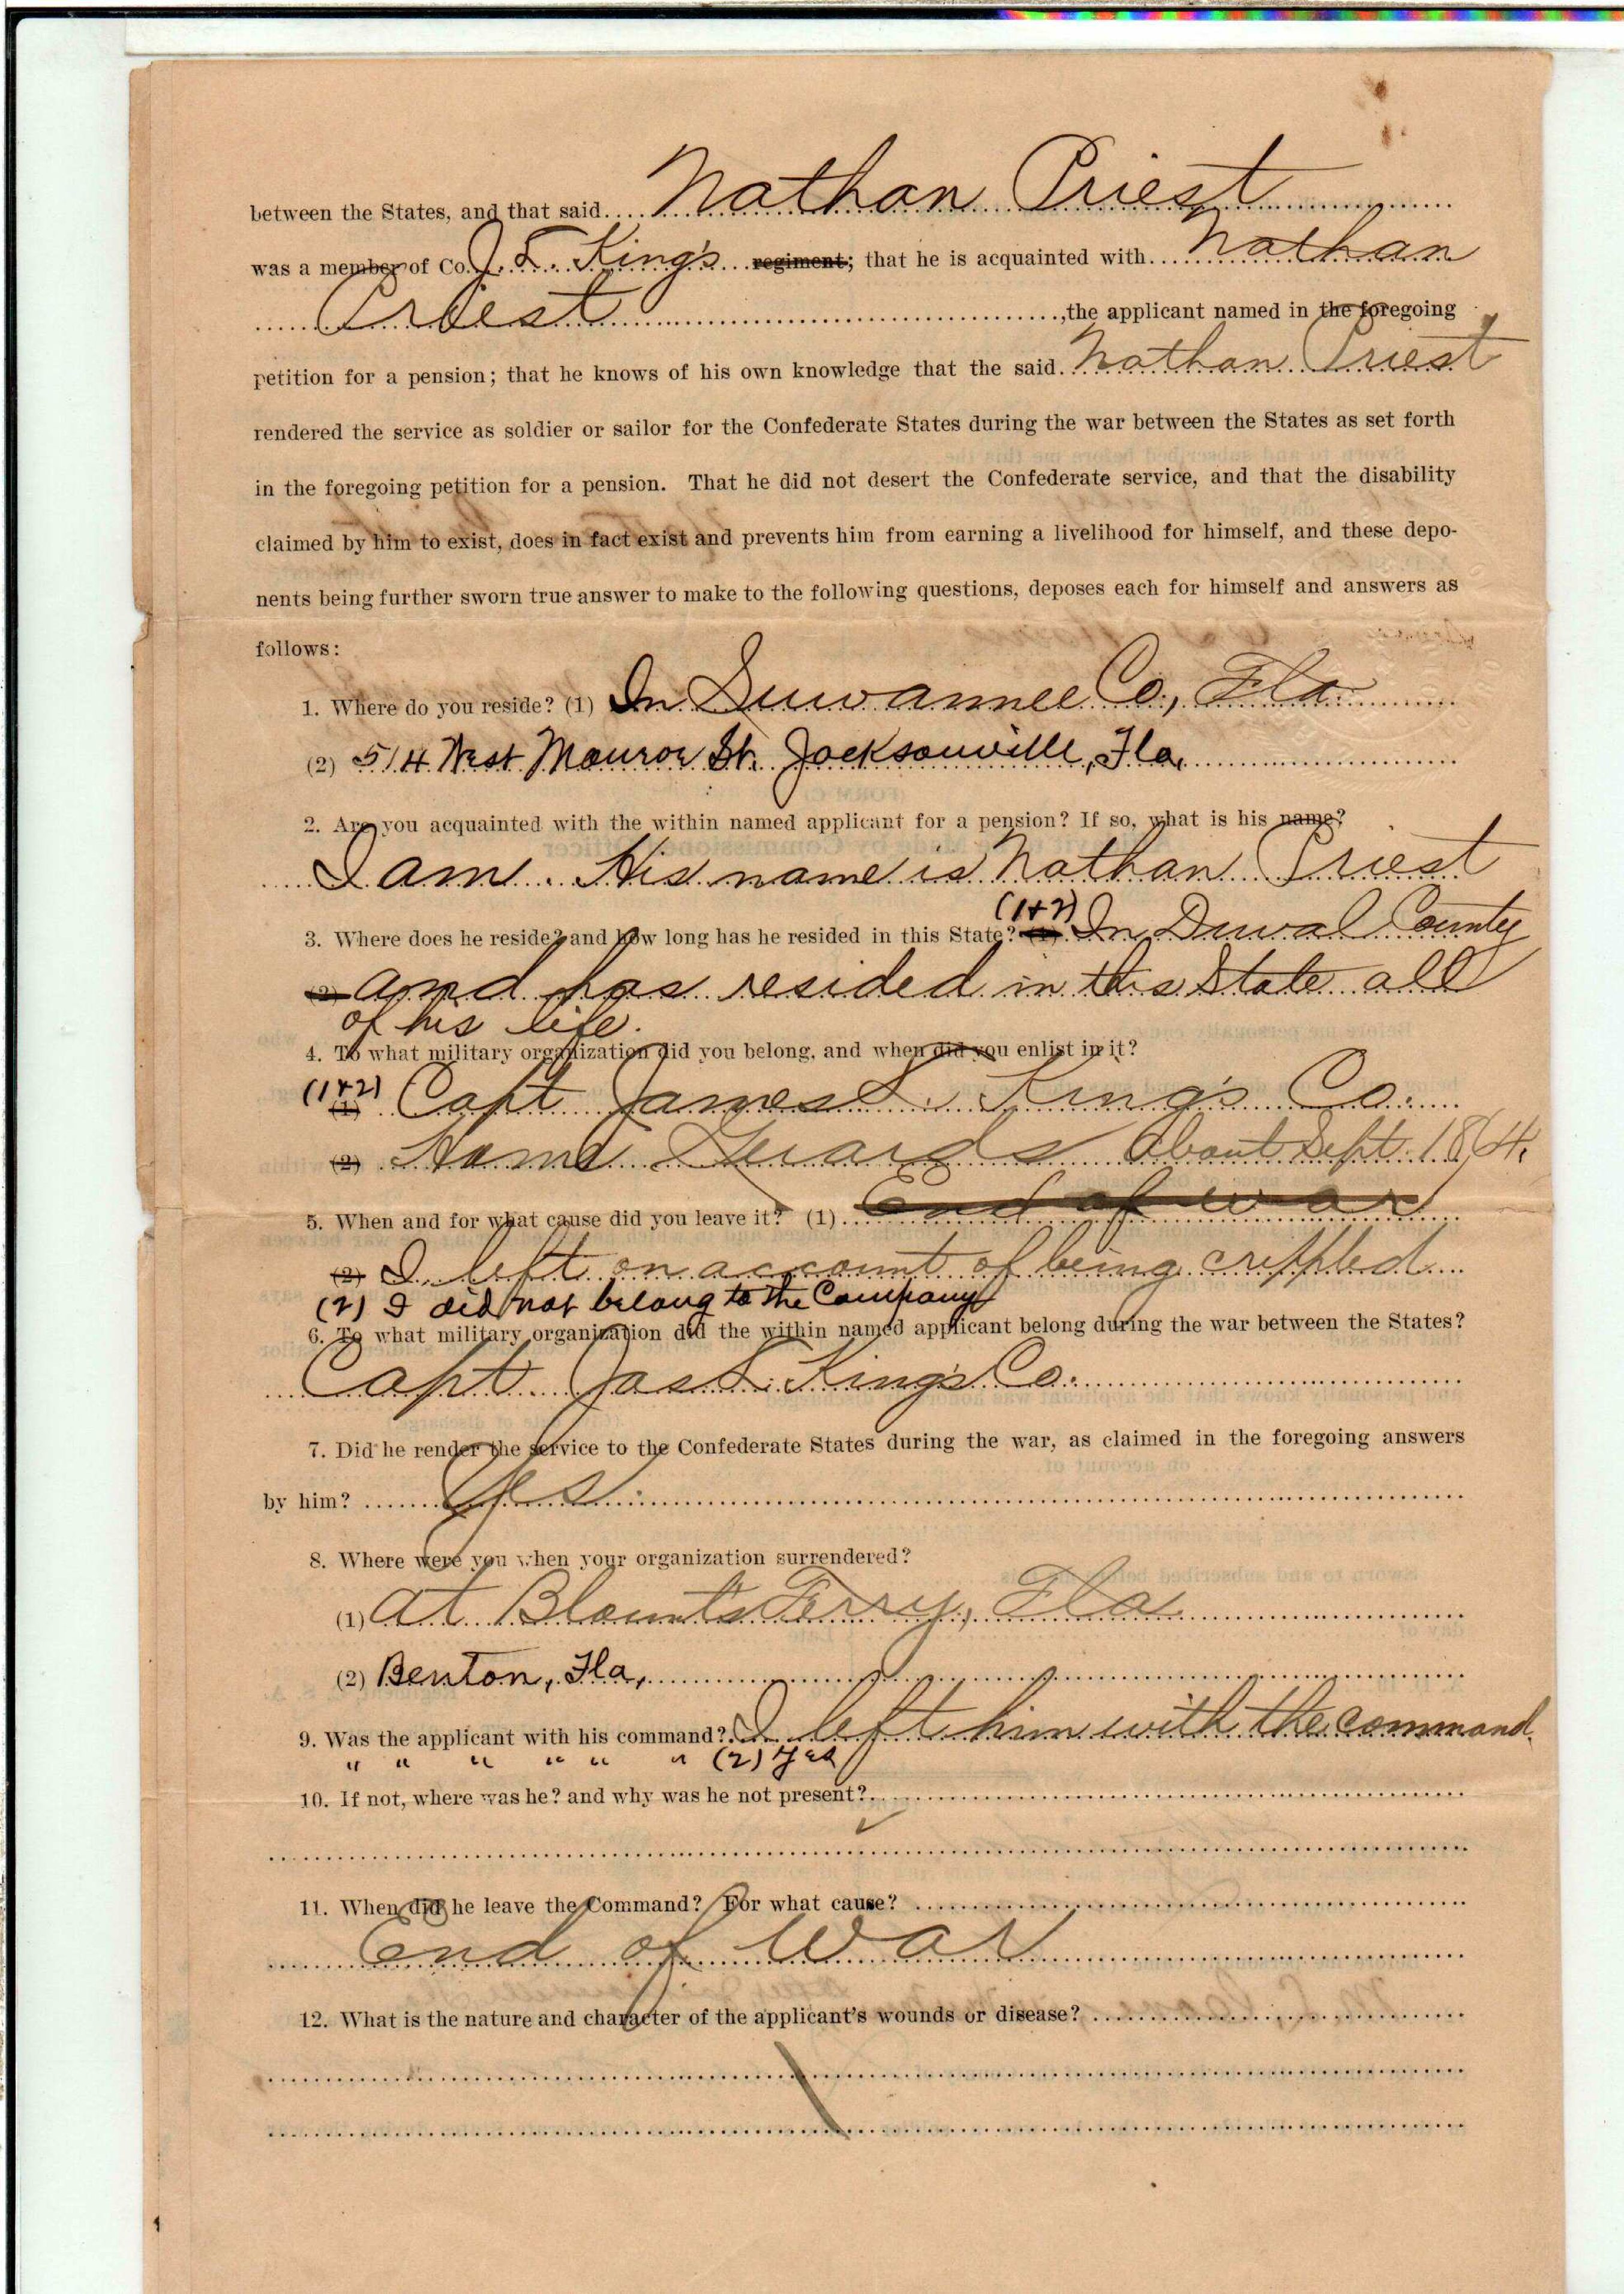 between the States, and that said Nathan Priest
was a member of Co. J. S. King's regiment; that he is acquainted with Nathan
Priest, the applicant named in the foregoing
petition for a pension; that he knows of his own knowledge that the said Nathan Priest
rendered the service as soldier or sailor for the Confederate States during the war between the States as set forth
in the foregoing petition for a pension. That he did not desert the Confederate service, and that the disability
claimed by him to exist, does in fact exist and prevents him from earning a livelihood for himself, and these depo-
nents being further sworn true answer to make to the following questions, deposes each for himself and answers as
follows:
1. Where do you reside? (1) In Suwannee Co., Fla.
(2) 514 West Monroe St. Jacksonville, Fla.
2. Are you acquainted with the within named applicant for a pension? If so, what is his name?
I am. His name is Nathan Priest
3. Where does he reside? and how long has he resided in this State? (1) (1+2) In Duval County
(2) and has resided in this State all
of his life.
4. To what military organization did you belong, and when did you enlist in it?
(1+2) (1) Capt James S. King's Co.
(2) Home Guards About Sept. 1864.
5. When and for what cause did you leave it? (1) End of war
(2) I left on account of being crippled
(2) I did not belong to the Company
6. To what military organization did the within named applicant belong during the war between the States?
Capt. Jas S. King's Co.
7. Did he render the service to the Confederate States during the war, as claimed in the foregoing answers
by him? Yes.
8. Where were you when your organization surrendered?
(1) At Blount's Ferry, Fla
(2) Benton, Fla.
9. Was the applicant with his command? I left him with the command.
" " " " " " (2) Yes
10. If not, where was he? and why was he not present?
11. When did he leave the Command? For what cause?
End of War
12. What is the nature and character of the applicant's wounds or disease?